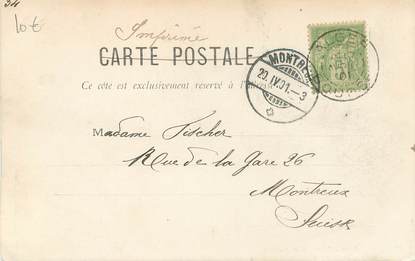 34
10 €
Imprimé
CARTE POSTALE
Ce côte est exclusivement reservé à
MONTREUX
29.IV.01.–3
ALGER
Madame Fischer
Rue de la Gare 26
Montreux
Suisse